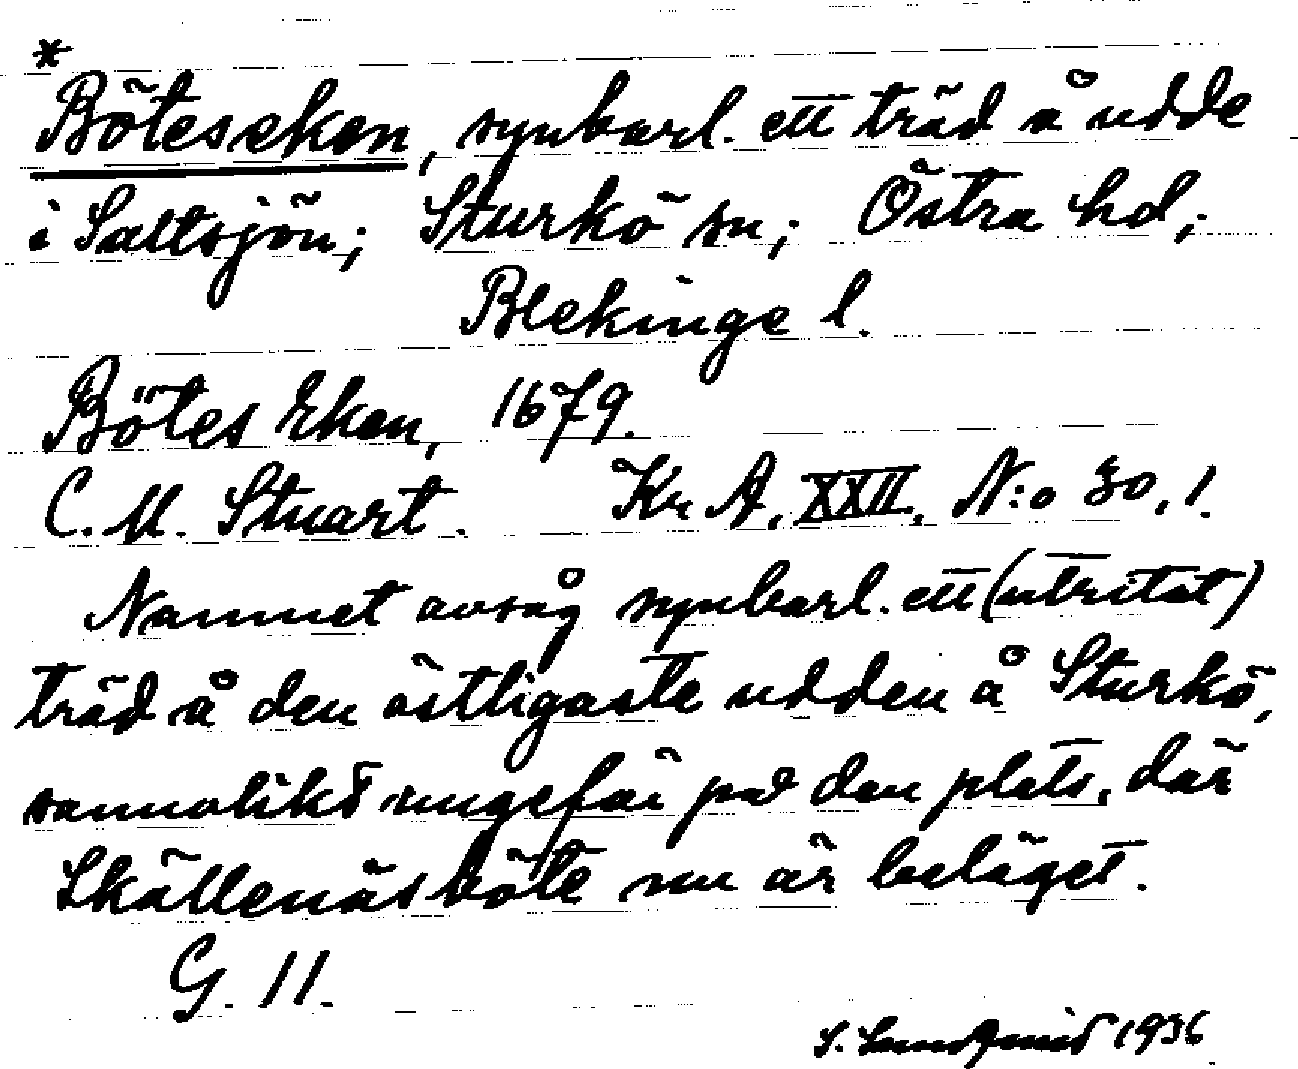 *
Böteseken, synbarl. ett träd å udde
i Saltsjön; Sturkö sn; Östra hd;
Blekinge l.
Bötes Eken, 1679.
C. M. Stuart. Kr A, XXII, N:o 30, 1.
Namnet avsåg synbarl. ett (utritat)
träd å den östligaste udden å Sturkö,
sannolikt ungefär på den plats, där
Skällenäs böte nu är beläget.
G. 11.
S. Lundqvist 1936